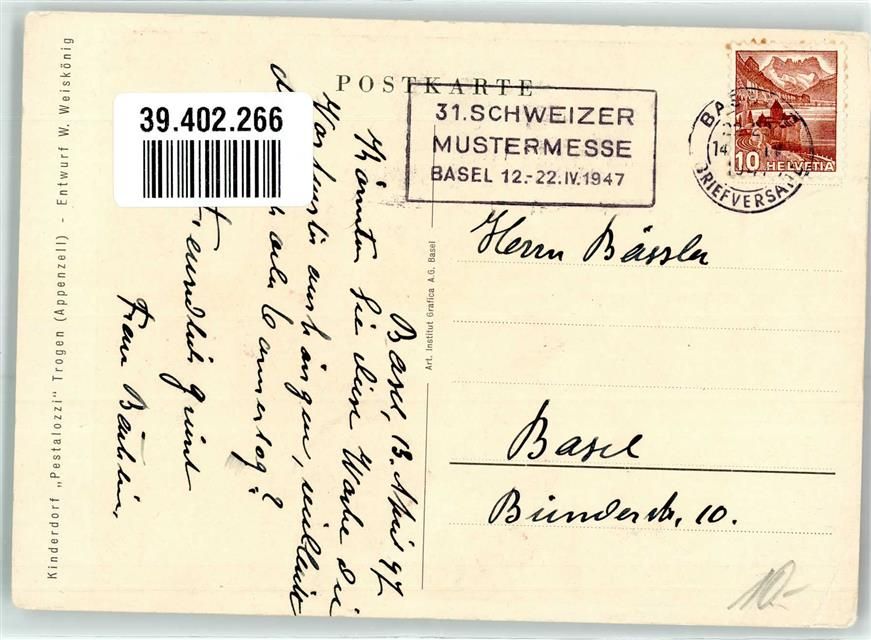 Kinderdorf „Pestalozzi“ Trogen (Appenzell) - Entwurf W. Weiskönig
POSTKARTE
39.402.266
31. SCHWEIZER
MUSTERMESSE
BASEL 12.-22.IV.1947
BASEL
BRIEFVERSAND
10 HELVETIA
Art. Institut Grafica A.G. Basel
Basel, 13. April 47.
Könnten Sie diese Woche die
Vorfenster aushängen, vielleicht
Samstag?
Freundlich grüsst
Frau
Herrn Bässler
Basel
Bündenstr. 10.
10.-